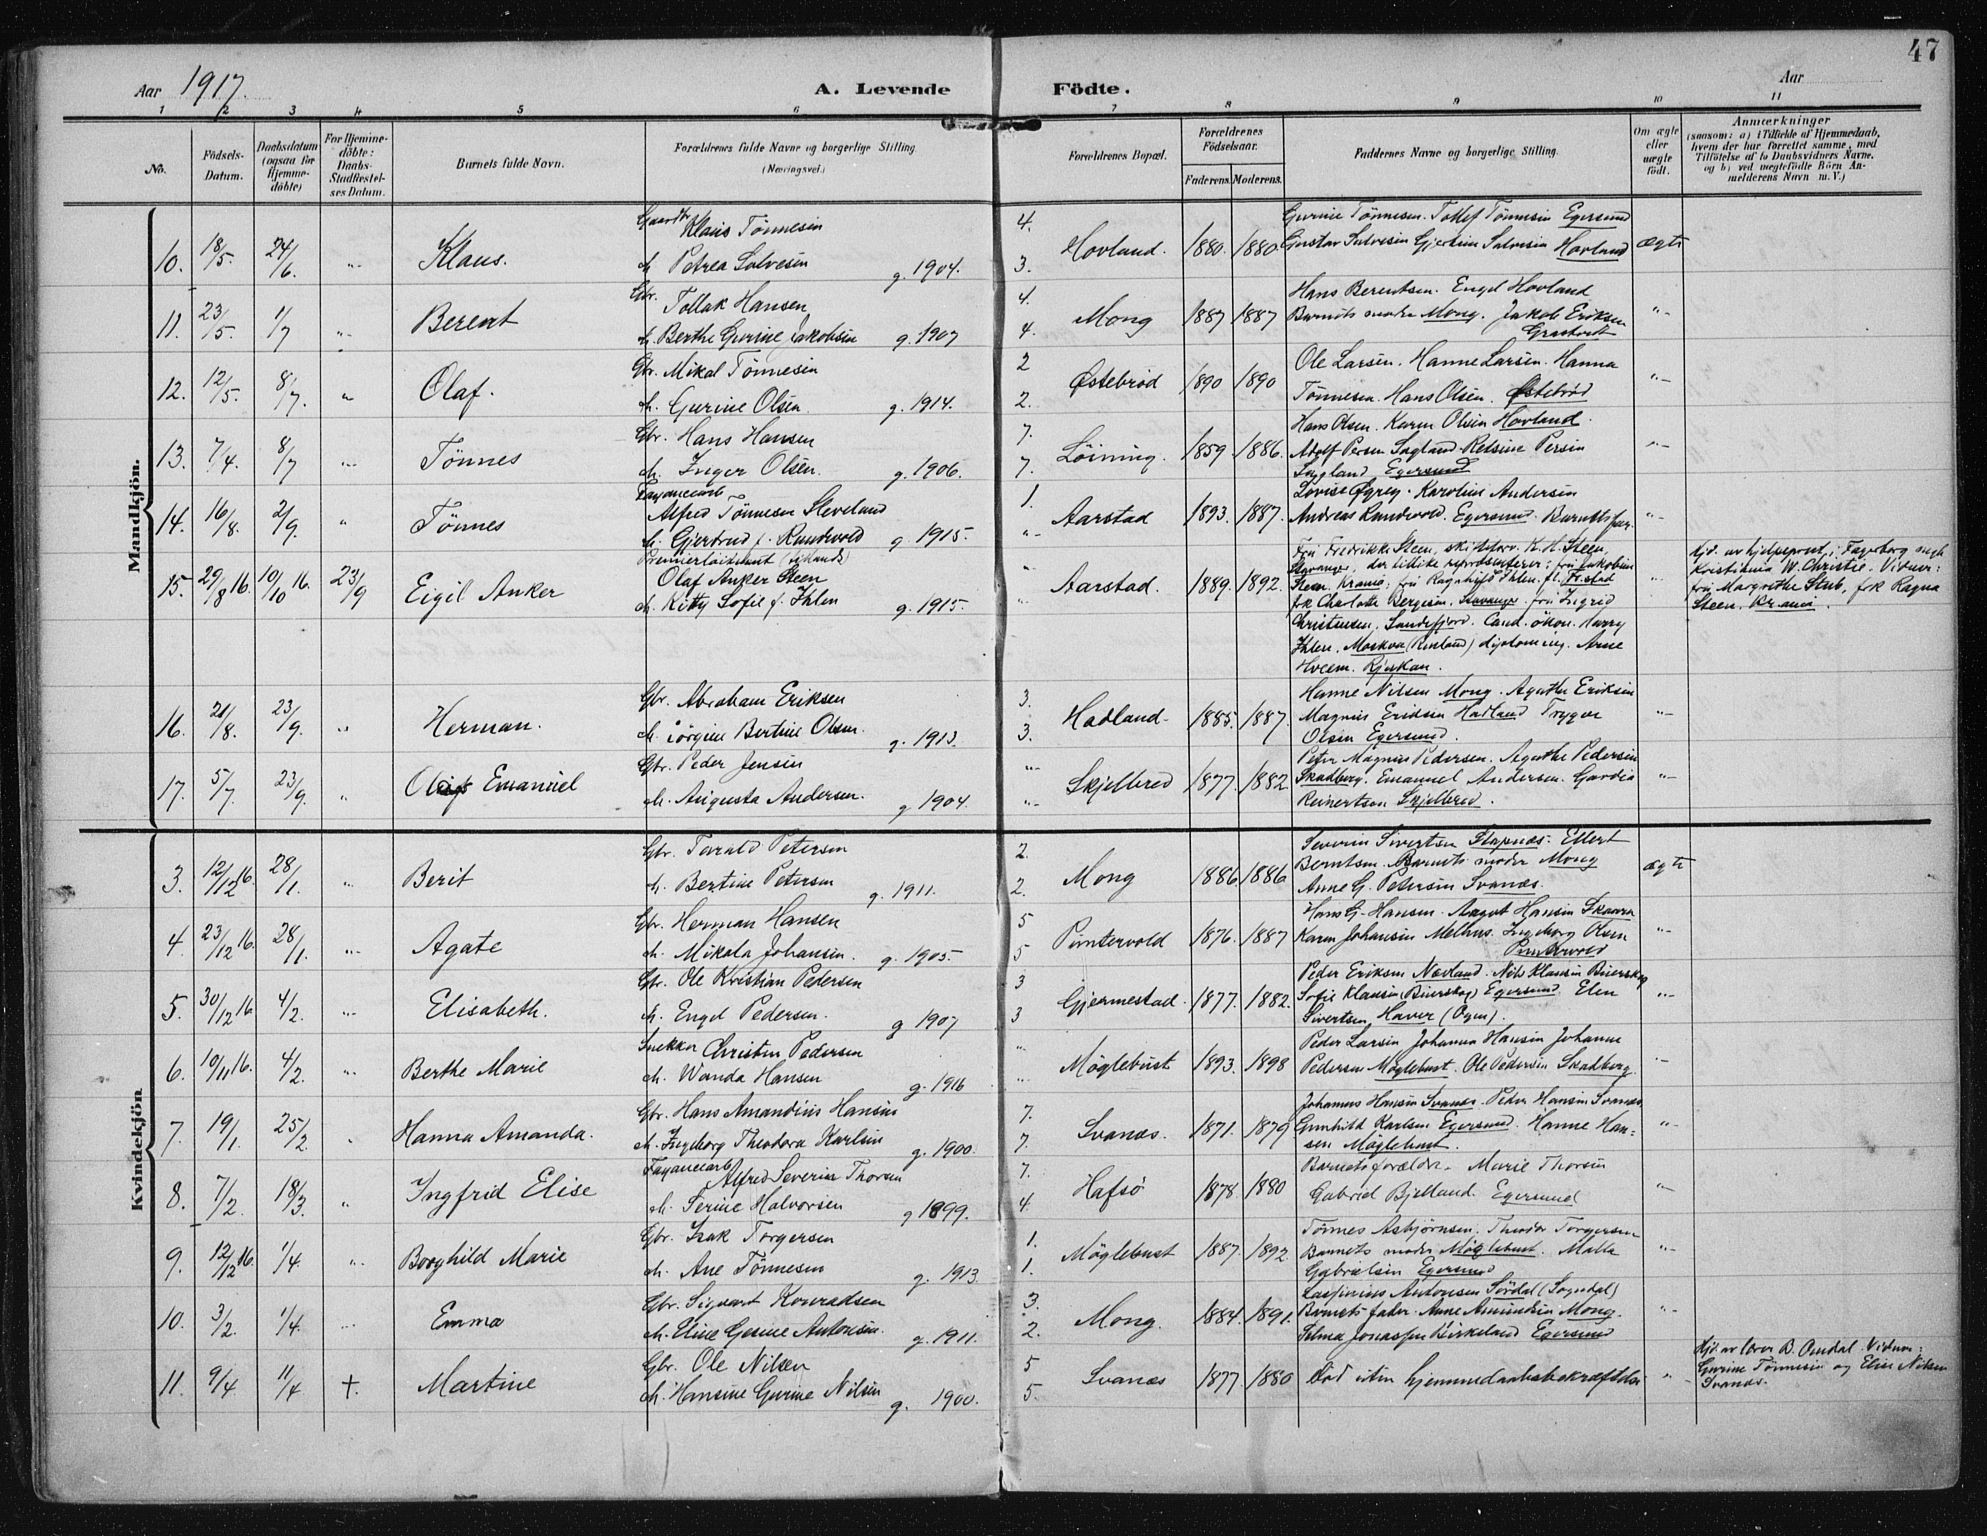 47
Aar 1917. A. Levende Födte. Aar
1 2 3 4 5 6 7 8 9 10 11
No.
Födsels-Datum.
Daabsdatum (ogsaa for Hjemme-döbte)
For Hjemme-döbte: Daabs-Stadfæstel-ses Datum.
Barnets fulde Navn.
Forældrenes fulde Navne og borgerlige Stilling. (Næringsvei.)
Forældrenes Bopæl.
Forældrenes Födselsaar.
Faderens. Moderens.
Faddernes Navne og borgerlige Stilling.
Om ægte eller uægte födt.
Anmærkninger
(saasom: a) i Tilfælde af Hjemmedaab,
hvem der har forrettet samme, med
Tilföielse af to Daabsvidners Navne,
og b) ved uægtefödte Börn An-
melderens Navn m. V.)
Mandkjön.
Gaardbr. Klaus Tönnesen 4. Gurine Tönnesen. Tollef Tönnesen Egersund
10. 18/5. 24/6. " Klaus. Hovland. 1880. 1880 Gustav Salvesen Gjertine Salvesen Hovland ægte
M. Petrea Salvesen g. 1904. 3.
Gbr. Tollak Hansen 4. Hans Berentsen. Engel Hovland
11. 23/5. 1/7 " Berent Mong 1887 1887 Barnets moder Mong. Jakob Eriksen "
M. Berthe Gurine Jakobsen g. 1907 4.
Gbr. Mikal Tönnesen 2 Ole Larsen. Hanne Larsen. Hanna
12. 12/5. 8/7. " Olaf. Østebröd 1890 1890 "
M. Gurine Olsen g. 1914. 2. Tönnesen. Hans Olsen. Østebröd
Gbr. Hans Hansen 7. Hans Olsen. Karen Olsen Hovland.
13. 7/4. 8/7 " Tönnes Löining. 1859. 1886. Adolf Persen Sagland. Retsine Persen "
M. Inger Olsen. g. 1906. 7. Sagland Egersund
Fayancearb. Alfred Tönnesen Sleveland 1. Lovise Øgrey. Karoline Andersen
14. 16/8. 2/9. " Tönnes Aarstad 1893. 1887. Andreas Rundvold. Egersund. "
M. Gjertrud f. Rundvold g. 1915. "
Premierlöitenant Fru Fredrikke Steen, K. H. Steen,
Olaf Anker Steen Stavanger,
15. 29/8 16. 10/10 16. 23/9 Eigil Anker Aarstad. 1889. 1892. "
M. Kitty Sofie f. Ihlen g. 1915. " frk Charlotte Bergesen, Stavanger. fru Ingrid
Christensen, Sandefjord. Cand. ökon. Harry
Ihlen. Moskva (Rusland) Arne
Hveem. Rjukan.
Kristiania W. Christie. Vidner:
fru Margrethe Stub, frk Ragna
Steen, Kr.ania.
Gbr. Abraham Eriksen 3. Hanne Nilsen Mong. Agathe Eriksen
16. 21/8. 23/9. " Herman. Hadland. 1885. 1887. Magnus Eriksen Hadland Trygve "
M. Bertine Olsen. g. 1913. 3. Olsen Egersund.
Gbr. Peder Jensen " Peter Magnus Pedersen. Agathe Pedersen
17. 5/7. 23/9. " Emanuel Skjelbred 1877. 1882. Skadberg. Emanuel Andersen. "
M. Augusta Andersen. g 1904. " Reinertsen Skjelbred.
Kvindekjön
Gbr. Tarald Petersen 2. Severin Sivertsen Stapnæs. Ellert
3. 12/12 16. 28/1. " Berit Mong 1886 1886 Berntsen. Barnets moder Mong ægte
M. Bertine Petersen g. 1911. 2. Anne G. Petersen Svanæs.
Gbr. Herman Hansen 5 Hans G. Hansen. Aagot Hansen Skaara
4. 23/12 16. 28/1. " Agate Puntervold 1876. 1887 Karen Johansen Melhus. Ingeborg Olsen "
M. Mikala Johansen. g. 1905. 5 Puntervold
Gbr. Ole Kristian Pedersen 3 Peder Eriksen Nævland. Nils Klausen Beierskog
5. 30/12 16 4/2. " Elisabeth. Gjermestad. 1877. 1882. Sofie Klausen (Beierskog) Egersund. Elen "
M. Engel Pedersen. g 1907 3 Sivertsen, Haver (Ogna).
Snekker Christen Pedersen " Peder Larsen Johanna Hansen Johanne
6. 10/11 16. 4/2. " Berthe Marie Möglebust 1893. 1898 Pedersen Möglebust. Ole Pedersen Skadberg. "
M. Wanda Hansen g. 1916 "
Gbr. Hans Amandius Hansen 7. Johannes Hansen Svanæs. Peder Hansen Svanæs.
7. 19/1. 25/2. " Hanna Amanda. Svanæs. 1871. 1879 Gunhild Karlsen Egersund. Hanne Han-
M. Ingeborg Theodora Karlsen g. 1900. 7. sen Möglebust.
Fayancearb. Alfred Severin Thorsen 7. Barnets forældre. Marie Thorsen
8. 7/2. 18/3. " Ingfrid Elise Hafsö 1878. 1880 Gabriel Bjelland. Egersund "
M. Serine Halvorsen g 1899. 4.
Gbr. Isak Torgersen 1. Tönnes Asbjörnsen. Theodor Torgersen
9. 12/12 16. 1/4. " Borghild Marie Möglebust 1887. 1892 Barnets moder Möglebust. Malla "
M. Ane Tönnesen g. 1913. 1. Gabrielsen Egersund
Gbr. Sigvart Konradsen 3. Antonsen Sördal (Sogndal)
10. 3/2. 1/4. " Emma Mong. 1884. 1891. Barnets fader. Anne Amundsen Mong. "
M. Eline Gesine Antonsen. g. 1911. 2. Selma Jonassen Birkeland Egersund
Gbr. Ole Nilsen 5 Hjd. av lærer B. Omdal. Vidner:
11. 9/4 11/4 +. Martine Svanæs 1877 1880 död uten hjemmedaabsbekræftelse " Gurine Tönnesen og Elise Nilsen
M. Hansine Gurine Nilsen g. 1900. 5. Svanæs.